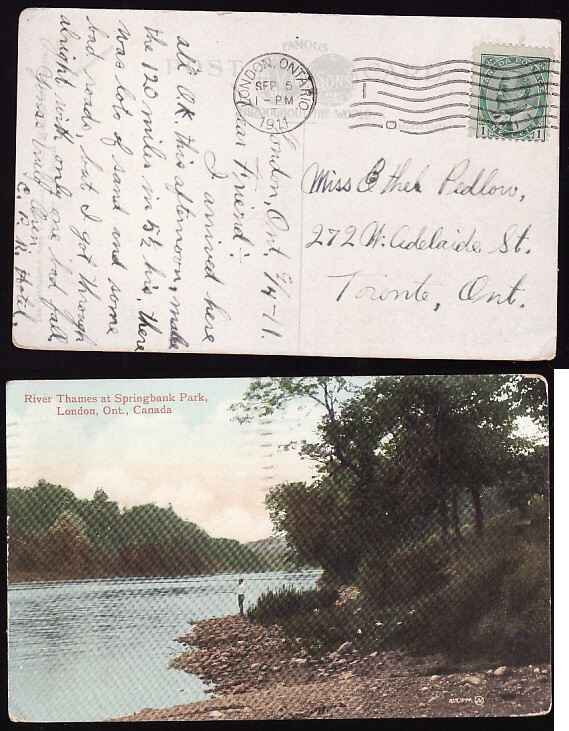 FAMOUS
POST CARD
LONDON, ONTARIO
SEP 5
1 - PM
1911
1 1
London, Ont. 9/4-11.
Dear Friend:
I arrived here
all OK this afternoon, made
the 120 miles in 5½ hrs, there
was lots of sand and some
bad roads, but I got through
alright with only one bad fall.
Yours Truly
C. P. R. Hotel.
Miss Ethel Pedlow,
272 W. Adelaide St.
Toronto, Ont.
River Thames at Springbank Park,
London, Ont., Canada